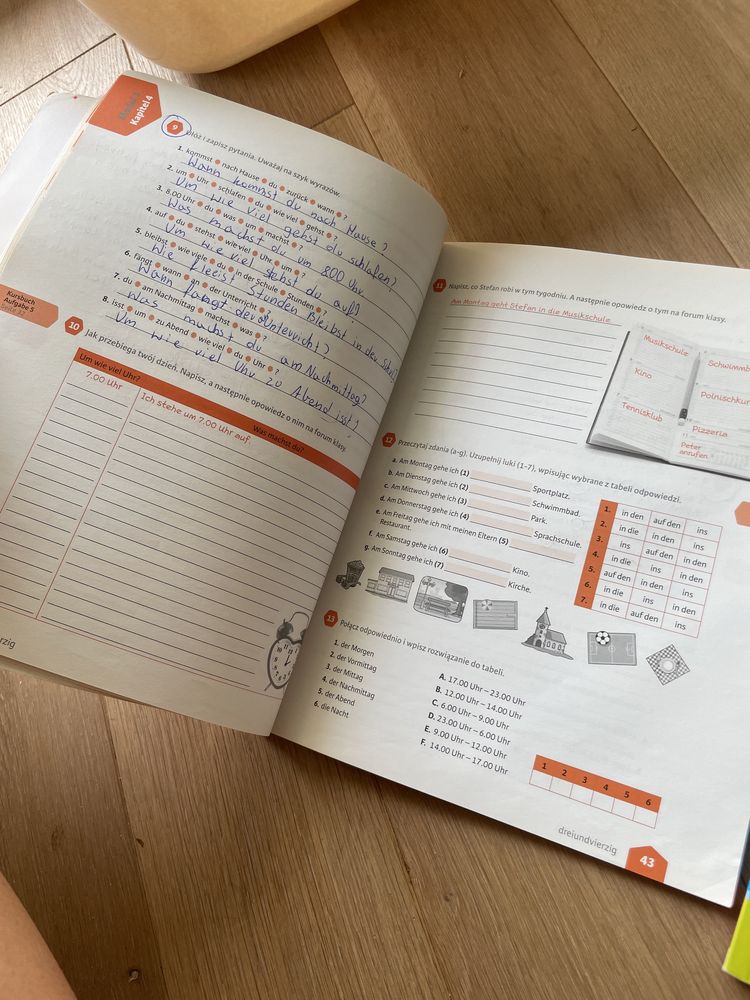 Kapitel 4
9 Ułóż i zapisz pytania. Uważaj na szyk wyrazów.
1. kommst • nach Hause • du • zurück • wann • ?
Wann kommst du nach Hause?
2. um • Uhr • schlafen • du • wie viel • gehst • ?
Um wie viel gehst du schlafen?
3. 8.00 Uhr • du • was • um • machst • ?
Was machst du um 800 Uhr
4. auf • du • stehst • wie viel • Uhr • um • ?
Um wie viel stehst du auf?
5. bleibst • wie viele • du • in der Schule • Stunden • ?
Wie Stunden bleibst in der
6. fängt • wann • an • der Unterricht • ?
Wann fängt der Unterricht?
7. du • am Nachmittag • machst • was • ?
Was machst du am Nachmittag?
8. isst • um • zu Abend • wie viel • du • Uhr • ?
Um wie viel Uhr zu Abend isst?
Kursbuch
Aufgabe 5
Seite 32
10 Jak przebiega twój dzień. Napisz, a następnie opowiedz o nim na forum klasy.
Um wie viel Uhr?
Was machst du?
7.00 Uhr
Ich stehe um 7.00 Uhr auf.
zig
11 Napisz, co Stefan robi w tym tygodniu. A następnie opowiedz o tym na forum klasy.
Am Montag geht Stefan in die Musikschule.
Musikschule
Kino
Tennisklub
Schwimmb
Polnischkur
Pizzeria
Peter
anrufen
12 Przeczytaj zdania (a-g). Uzupełnij luki (1–7), wpisując wybrane z tabeli odpowiedzi.
a. Am Montag gehe ich (1) Sportplatz.
b. Am Dienstag gehe ich (2) Schwimmbad.
c. Am Mittwoch gehe ich (3) Park.
d. Am Donnerstag gehe ich (4) Sprachschule.
e. Am Freitag gehe ich mit meinen Eltern (5)
Restaurant.
f. Am Samstag gehe ich (6) Kino.
g. Am Sonntag gehe ich (7) Kirche.
1. in den auf den ins
2. in die in den ins
3. ins auf den in den
4. in die ins in den
5. auf den in den ins
6. in die ins in den
7. in die auf den ins
13 Połącz odpowiednio i wpisz rozwiązanie do tabeli.
1. der Morgen
2. der Vormittag
3. der Mittag
4. der Nachmittag
5. der Abend
6. die Nacht
A. 17.00 Uhr – 23.00 Uhr
B. 12.00 Uhr – 14.00 Uhr
C. 6.00 Uhr – 9.00 Uhr
D. 23.00 Uhr – 6.00 Uhr
E. 9.00 Uhr – 12.00 Uhr
F. 14.00 Uhr – 17.00 Uhr
1 2 3 4 5 6
dreiundvierzig
43